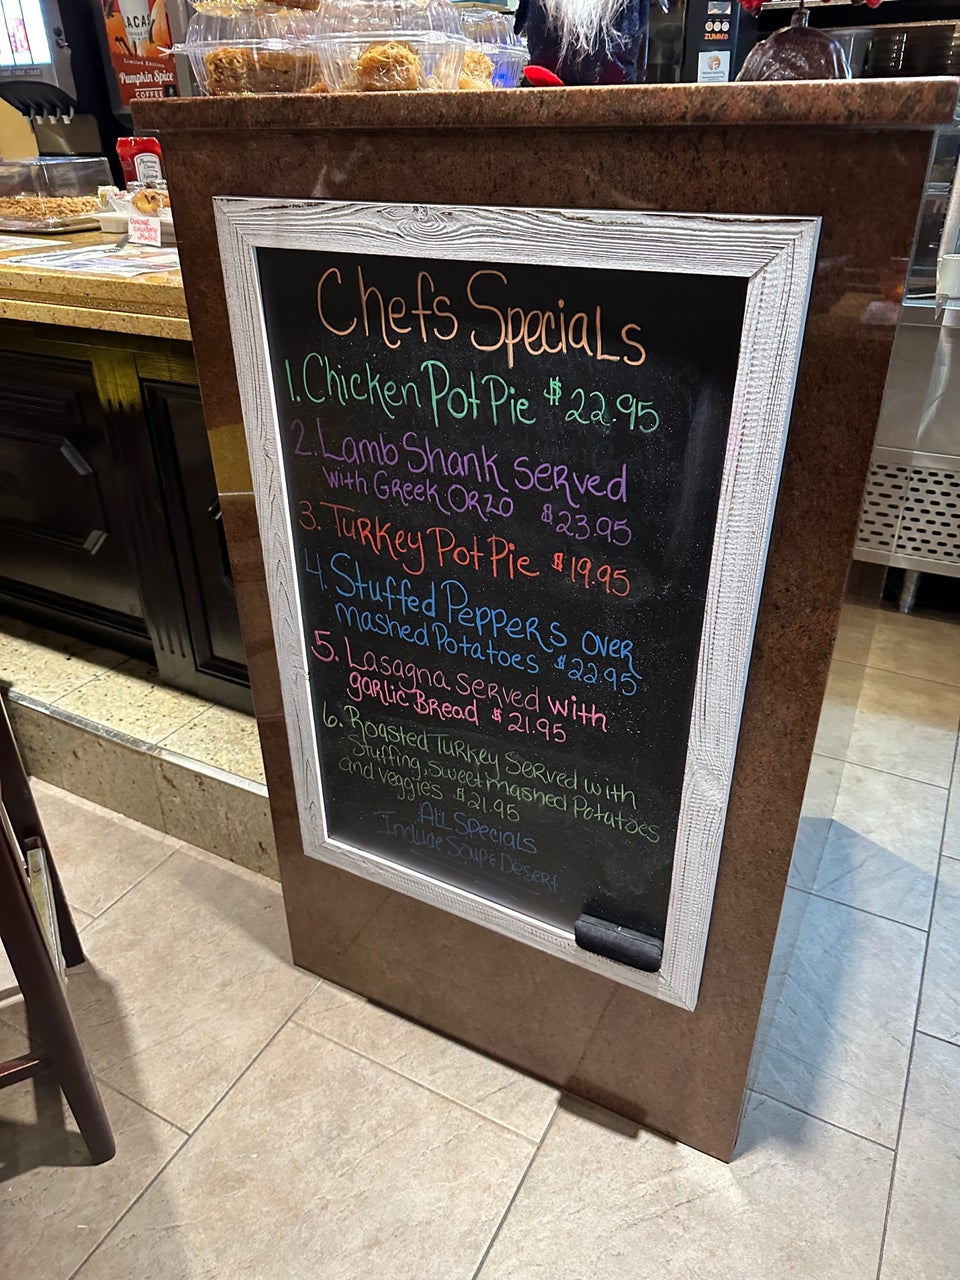 ACAS
Limited Edition
Pumpkin Spice
COFFEE
ZUMMO
Chefs Specials
1. Chicken Pot Pie $22.95
2. Lamb Shank served
with Greek Orzo $23.95
3. Turkey Pot Pie $19.95
4. Stuffed Peppers over
mashed Potatoes $22.95
5. Lasagna served with
garlic Bread $21.95
6. Roasted Turkey served with
Stuffing, sweet mashed Potatoes
and veggies $21.95
All Specials
Include Soup & Desert